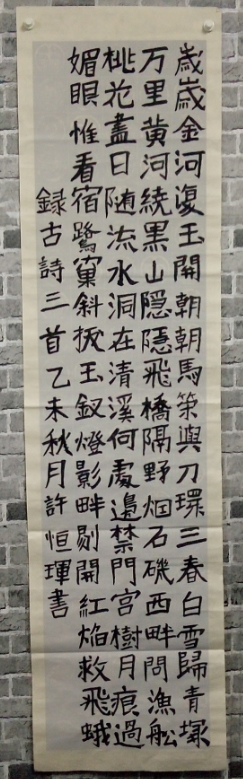 歲歲金河復玉關朝朝馬策與刀環三春白雪歸青塚
万里黄河繞黑山隱隱飛橋隔野烟石磯西畔問漁舩
桃花盡日随流水洞在清溪何處邊禁門宮樹月痕過
媚眼惟看宿鷺窠斜拔玉釵燈影畔剔開紅焰救飛蛾
録古詩三首乙未秋月許恒琿書